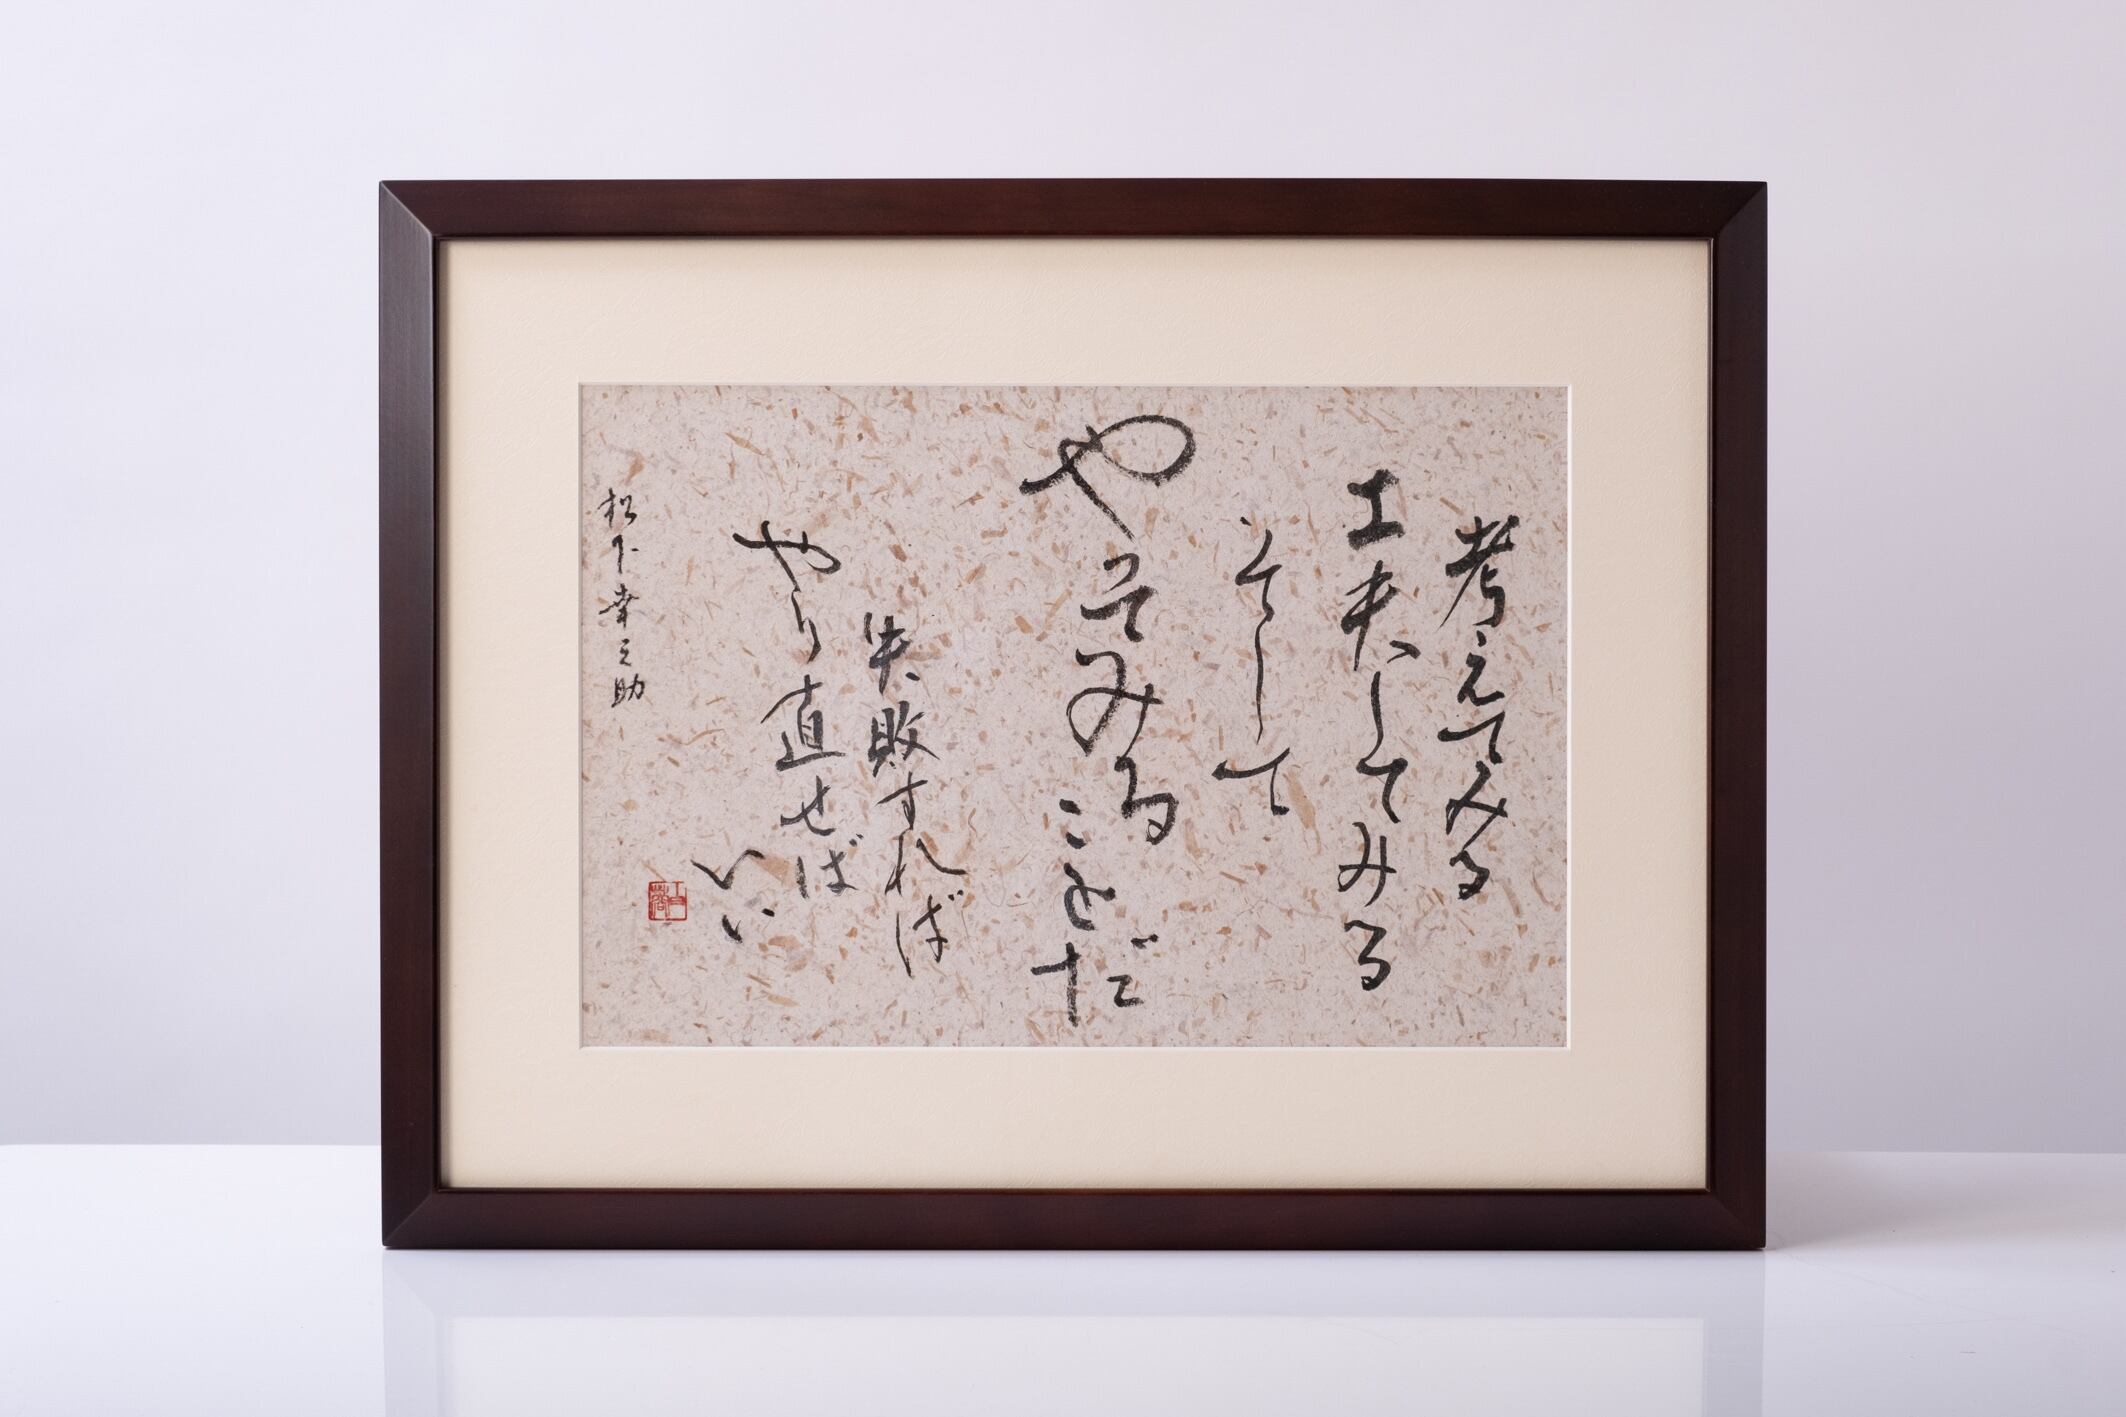 考えてみる
工夫してみる
そして
やってみることだ
失敗すれば
やり直せば
いい
松下幸之助